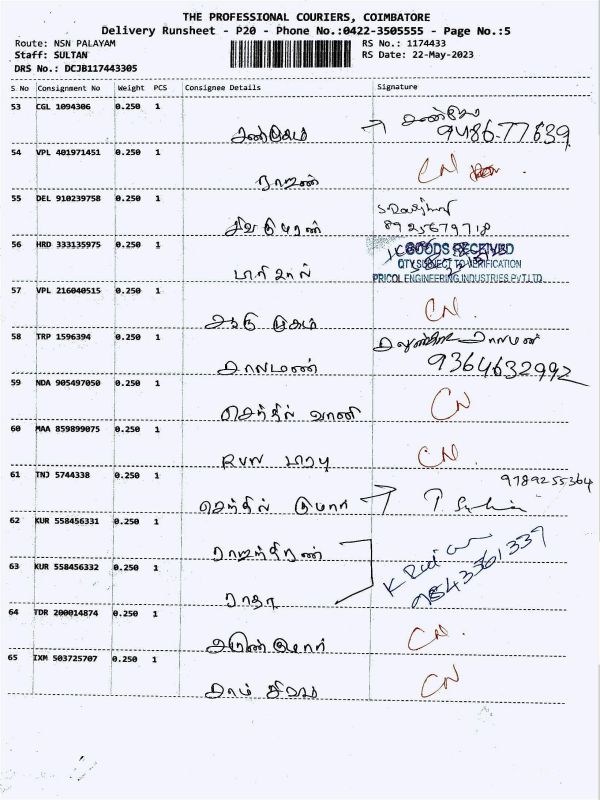 THE PROFESSIONAL COURIERS, COIMBATORE
Delivery Runsheet - P20 - Phone No.:0422-3505555 - Page No.:5
Route: NSN PALAYAM RS No.: 1174433
Staff: SULTAN RS Date: 22-May-2023
DRS No.: DCJB117443305
S No Consignment No Weight PCS Consignee Details Signature
53 CGL 1094306 0.250 1
சண்முகம் 9486-77639
54 VPL 401971451 0.250 1
ராஜன் CN
55 DEL 910239758 0.250 1
8925679718
56 HRD 333135975 0.250 1 GOODS RECEIVED
QTY SUBJECT TO VERIFICATION
PRICOL ENGINEERING INDUSTRIES PVT LTD
57 VPL 216040515 0.250 1
ஆறு முகம் CN
58 TRP 1596394 0.250 1
சாலமண் 9364632992
59 NDA 905497050 0.250 1
செந்தில் வாணி CN
60 MAA 859899075 0.250 1
CN
61 TNJ 5744338 0.250 1 9789255364
செந்தில் குமார்
62 KUR 558456331 0.250 1
ராஜந்திரண்
63 KUR 558456332 0.250 1 9843561339
ராதா
64 TDR 200014874 0.250 1
CN
65 IXM 503725707 0.250 1
CN